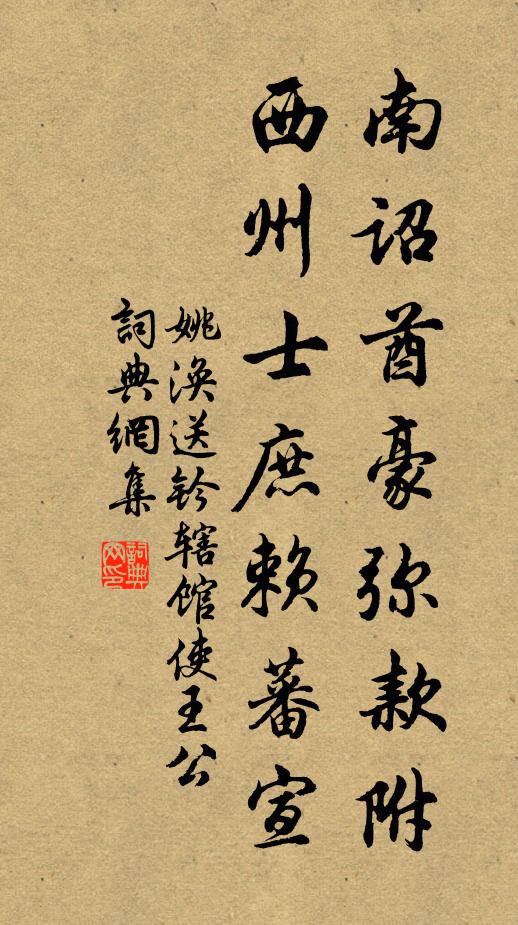 南诏酋豪弥款附
西州士庶赖蕃宣
姚涣送钤辖馆使王公
詞典網集
詞典网印